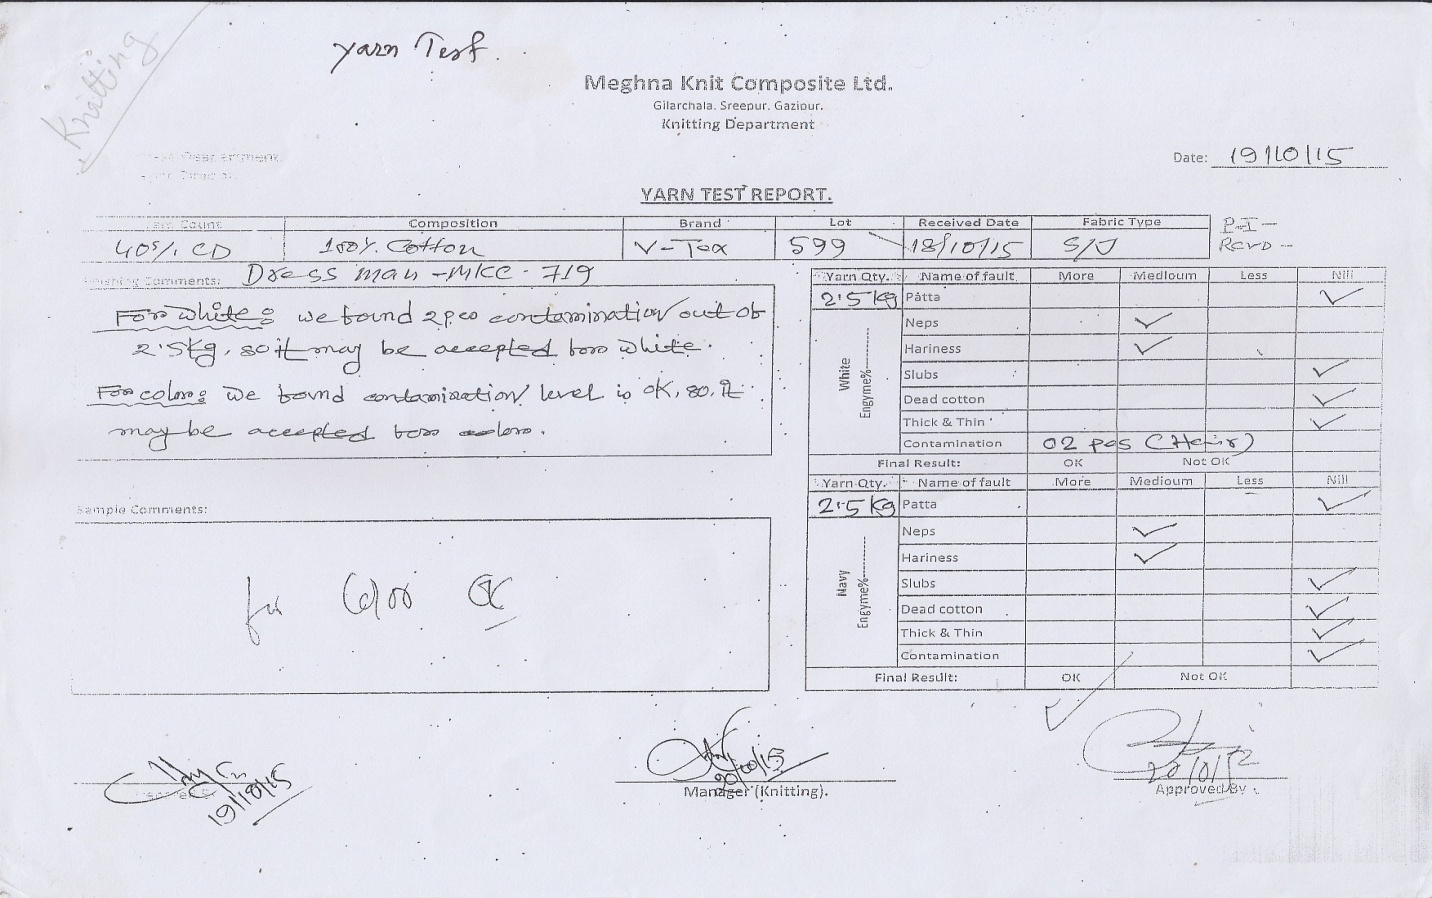 Knitting
Yarn Test.
Meghna Knit Composite Ltd.
Gilarchala. Sreepur. Gazipur.
Knitting Department
Date: 19/10/15
YARN TEST REPORT.
Count Composition Brand Lot Received Date Fabric Type
40s/1 CD 100% Cotton V-Tex 599 18/10/15 S/J
P-I-
Rcvd-
Comments: Dress man -MKC- 719
For white: we found 2 pcs contamination out of
2.5kg, so it may be accepted for white.
For color: we found contamination level is OK, so, it
may be accepted for color.
Yarn Qty. Name of fault More Medioum Less Nill
2.5 kg Patta ✓
Neps ✓
Hariness ✓
Slubs ✓
Dead cotton ✓
Thick & Thin ✓
Contamination 02 pcs (Hair)
White
Engyme%----------
Final Result: OK Not OK
Yarn Qty. Name of fault More Medioum Less Nill
2.5 kg Patta ✓
Neps ✓
Hariness ✓
Slubs ✓
Dead cotton ✓
Thick & Thin ✓
Contamination ✓
Navy
Engyme%----------
Final Result: OK Not OK
✓
Sample Comments:
for Color OK
19/10/15
20/10/15
Manager (Knitting).
20/10/15
Approved By